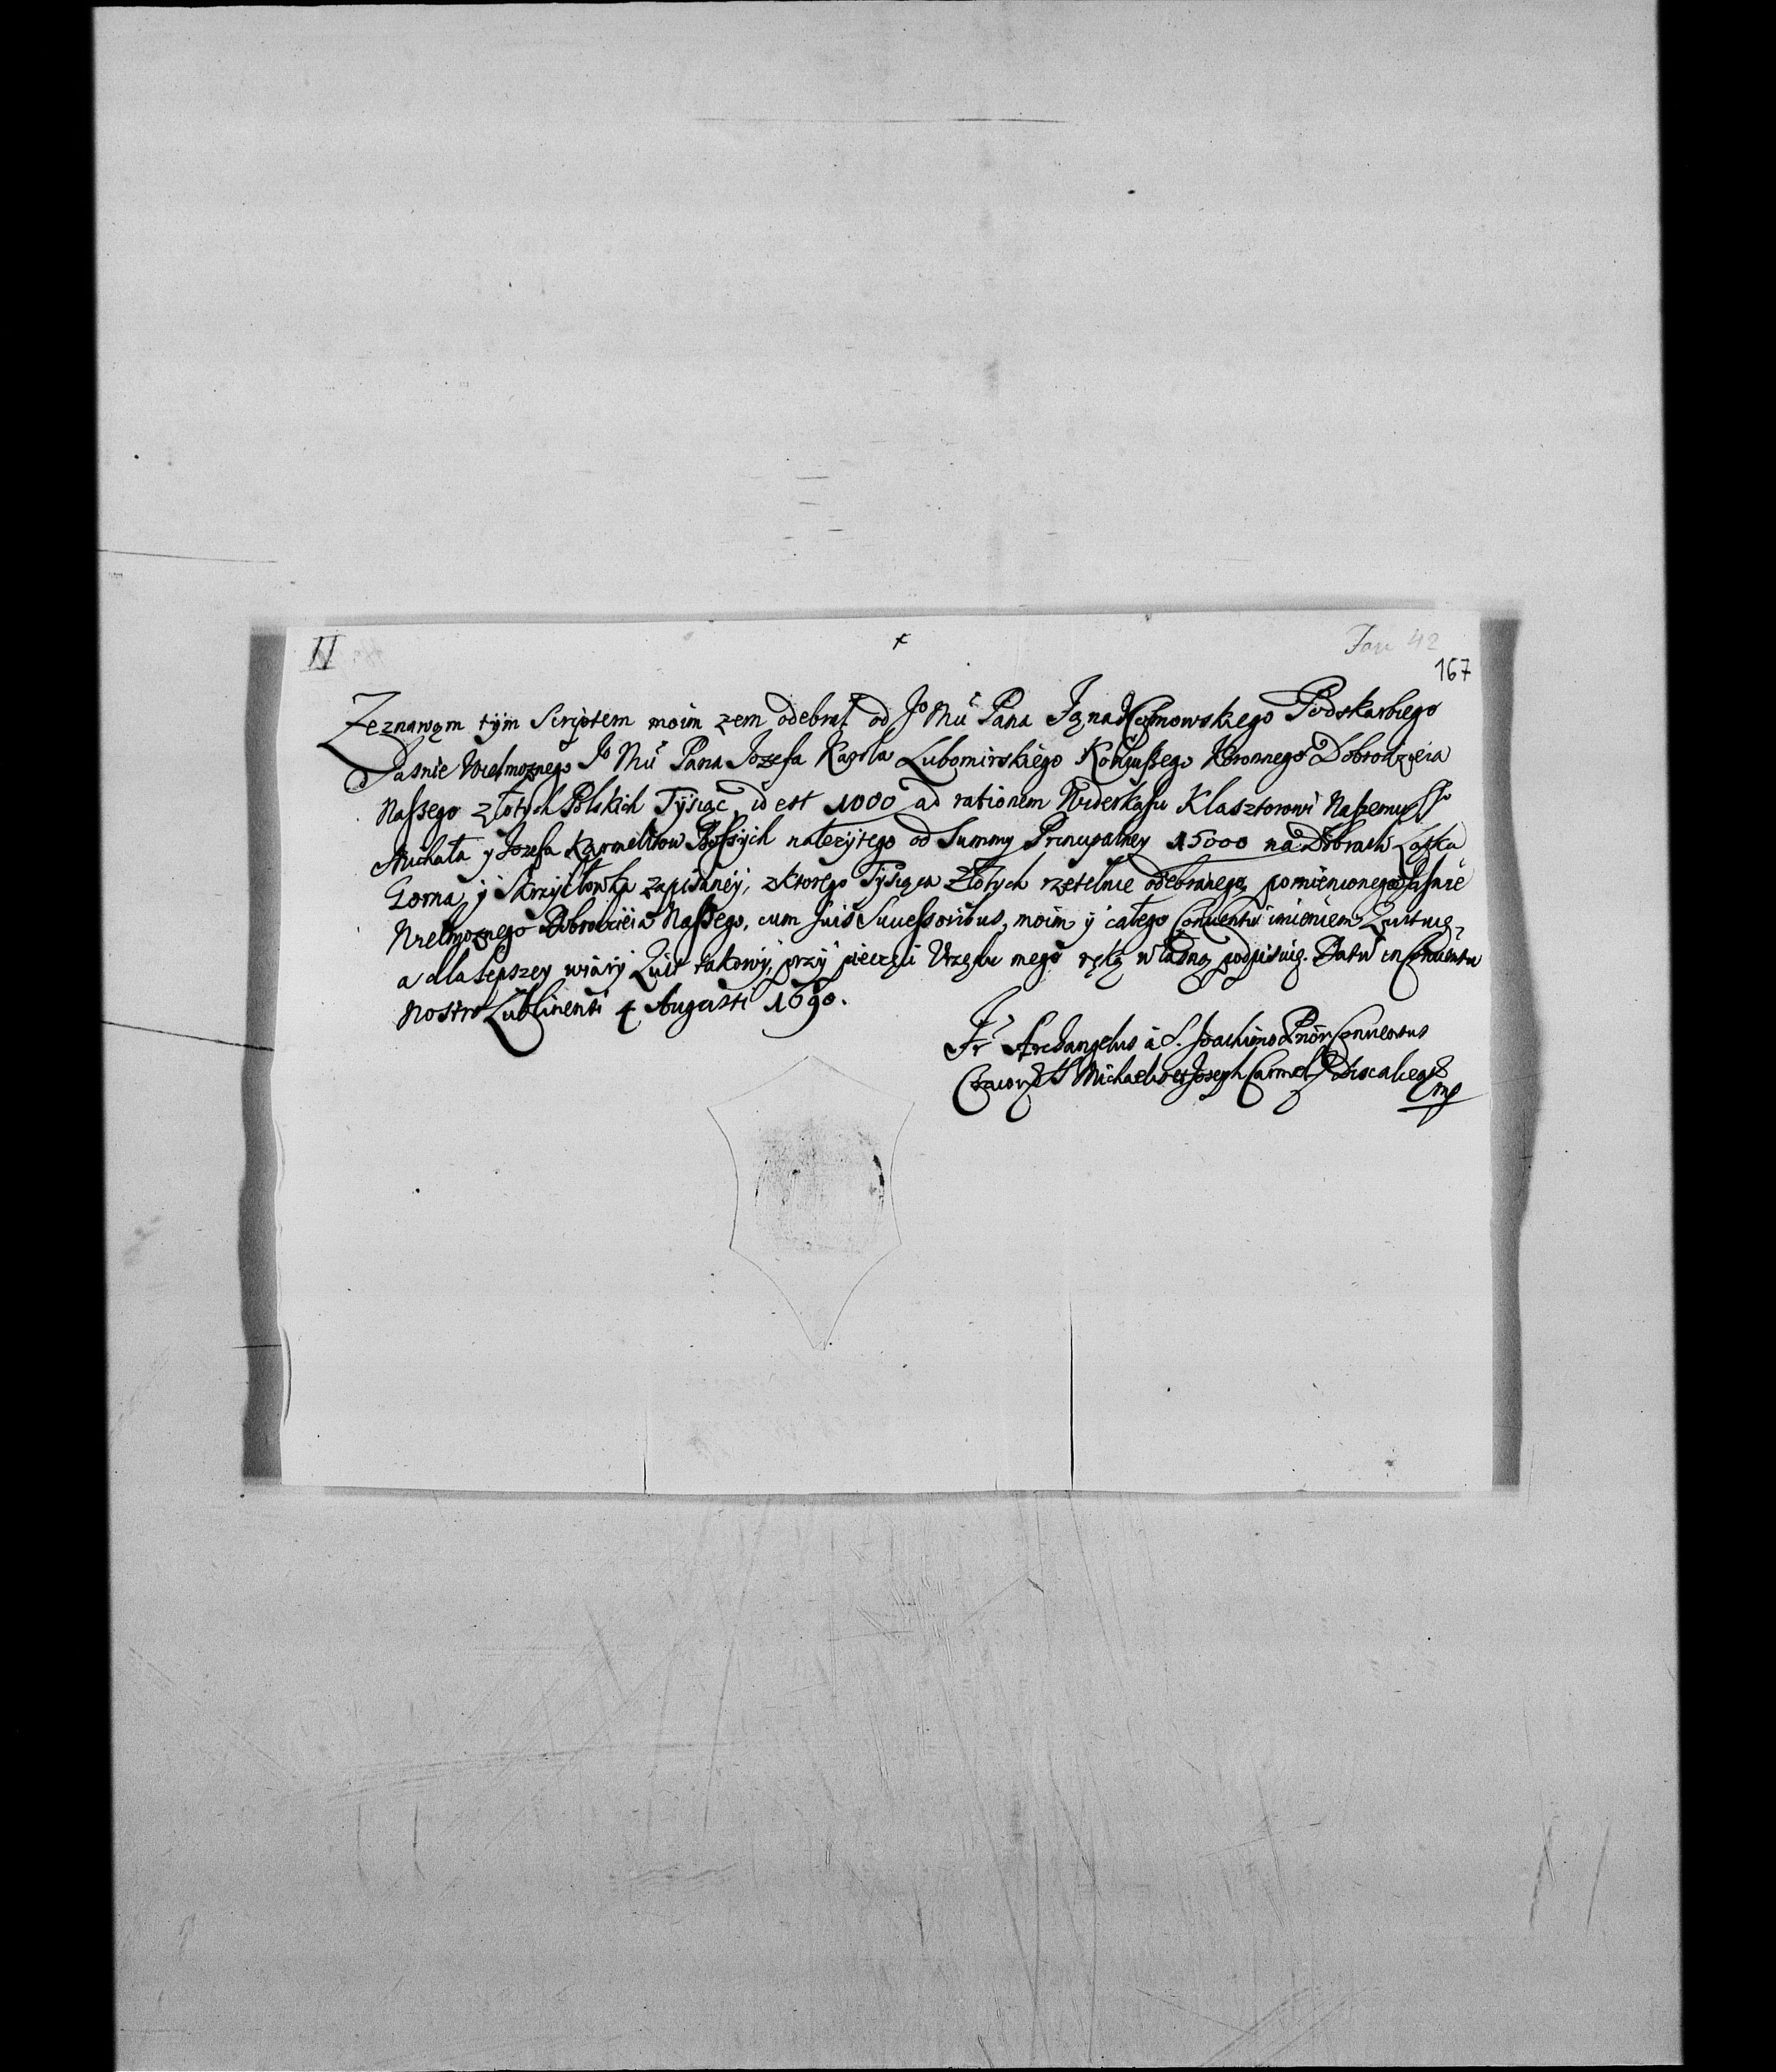 II
+
Fasc 42
167
Zeznawąm tym Scriptem moim zem odebrał od Jo Mci Pana Podskarbiego
Jasnie Wielmoznego Jo Mci Pana Jozefa Karola Lubomirskiego Koniuszego Koronnego Dobrodzieia
Naszego złotych Polskich Tysiąc id est 1000 ad rationem Widerkafu Klasztorowi Naszemu SSo
Michała y Jozefa Karmelitow Bossych nalezytego od Summy Principalney 15000 na Dobrach
Gorna y zapisaney, z ktorego Tysiąca Złotych rzetelnie odebranego, pomienionego Jasnie
Wielmoznego Dobrodzieia Naszego, cum suis Successoribus, moim y całego Conuentu imieniem Quituię,
a dla lepszey wiary Quit takowy, przy pieczęci Vrzędu mego ręką własną podpisuię. Datu in Conuentu
Nostro Lublinensi 4 Augusti 1690.
Fr Archangelus à S. Joachimo Prior Conuentus
SS Michaelis et Joseph Carmel Discalceat
mp